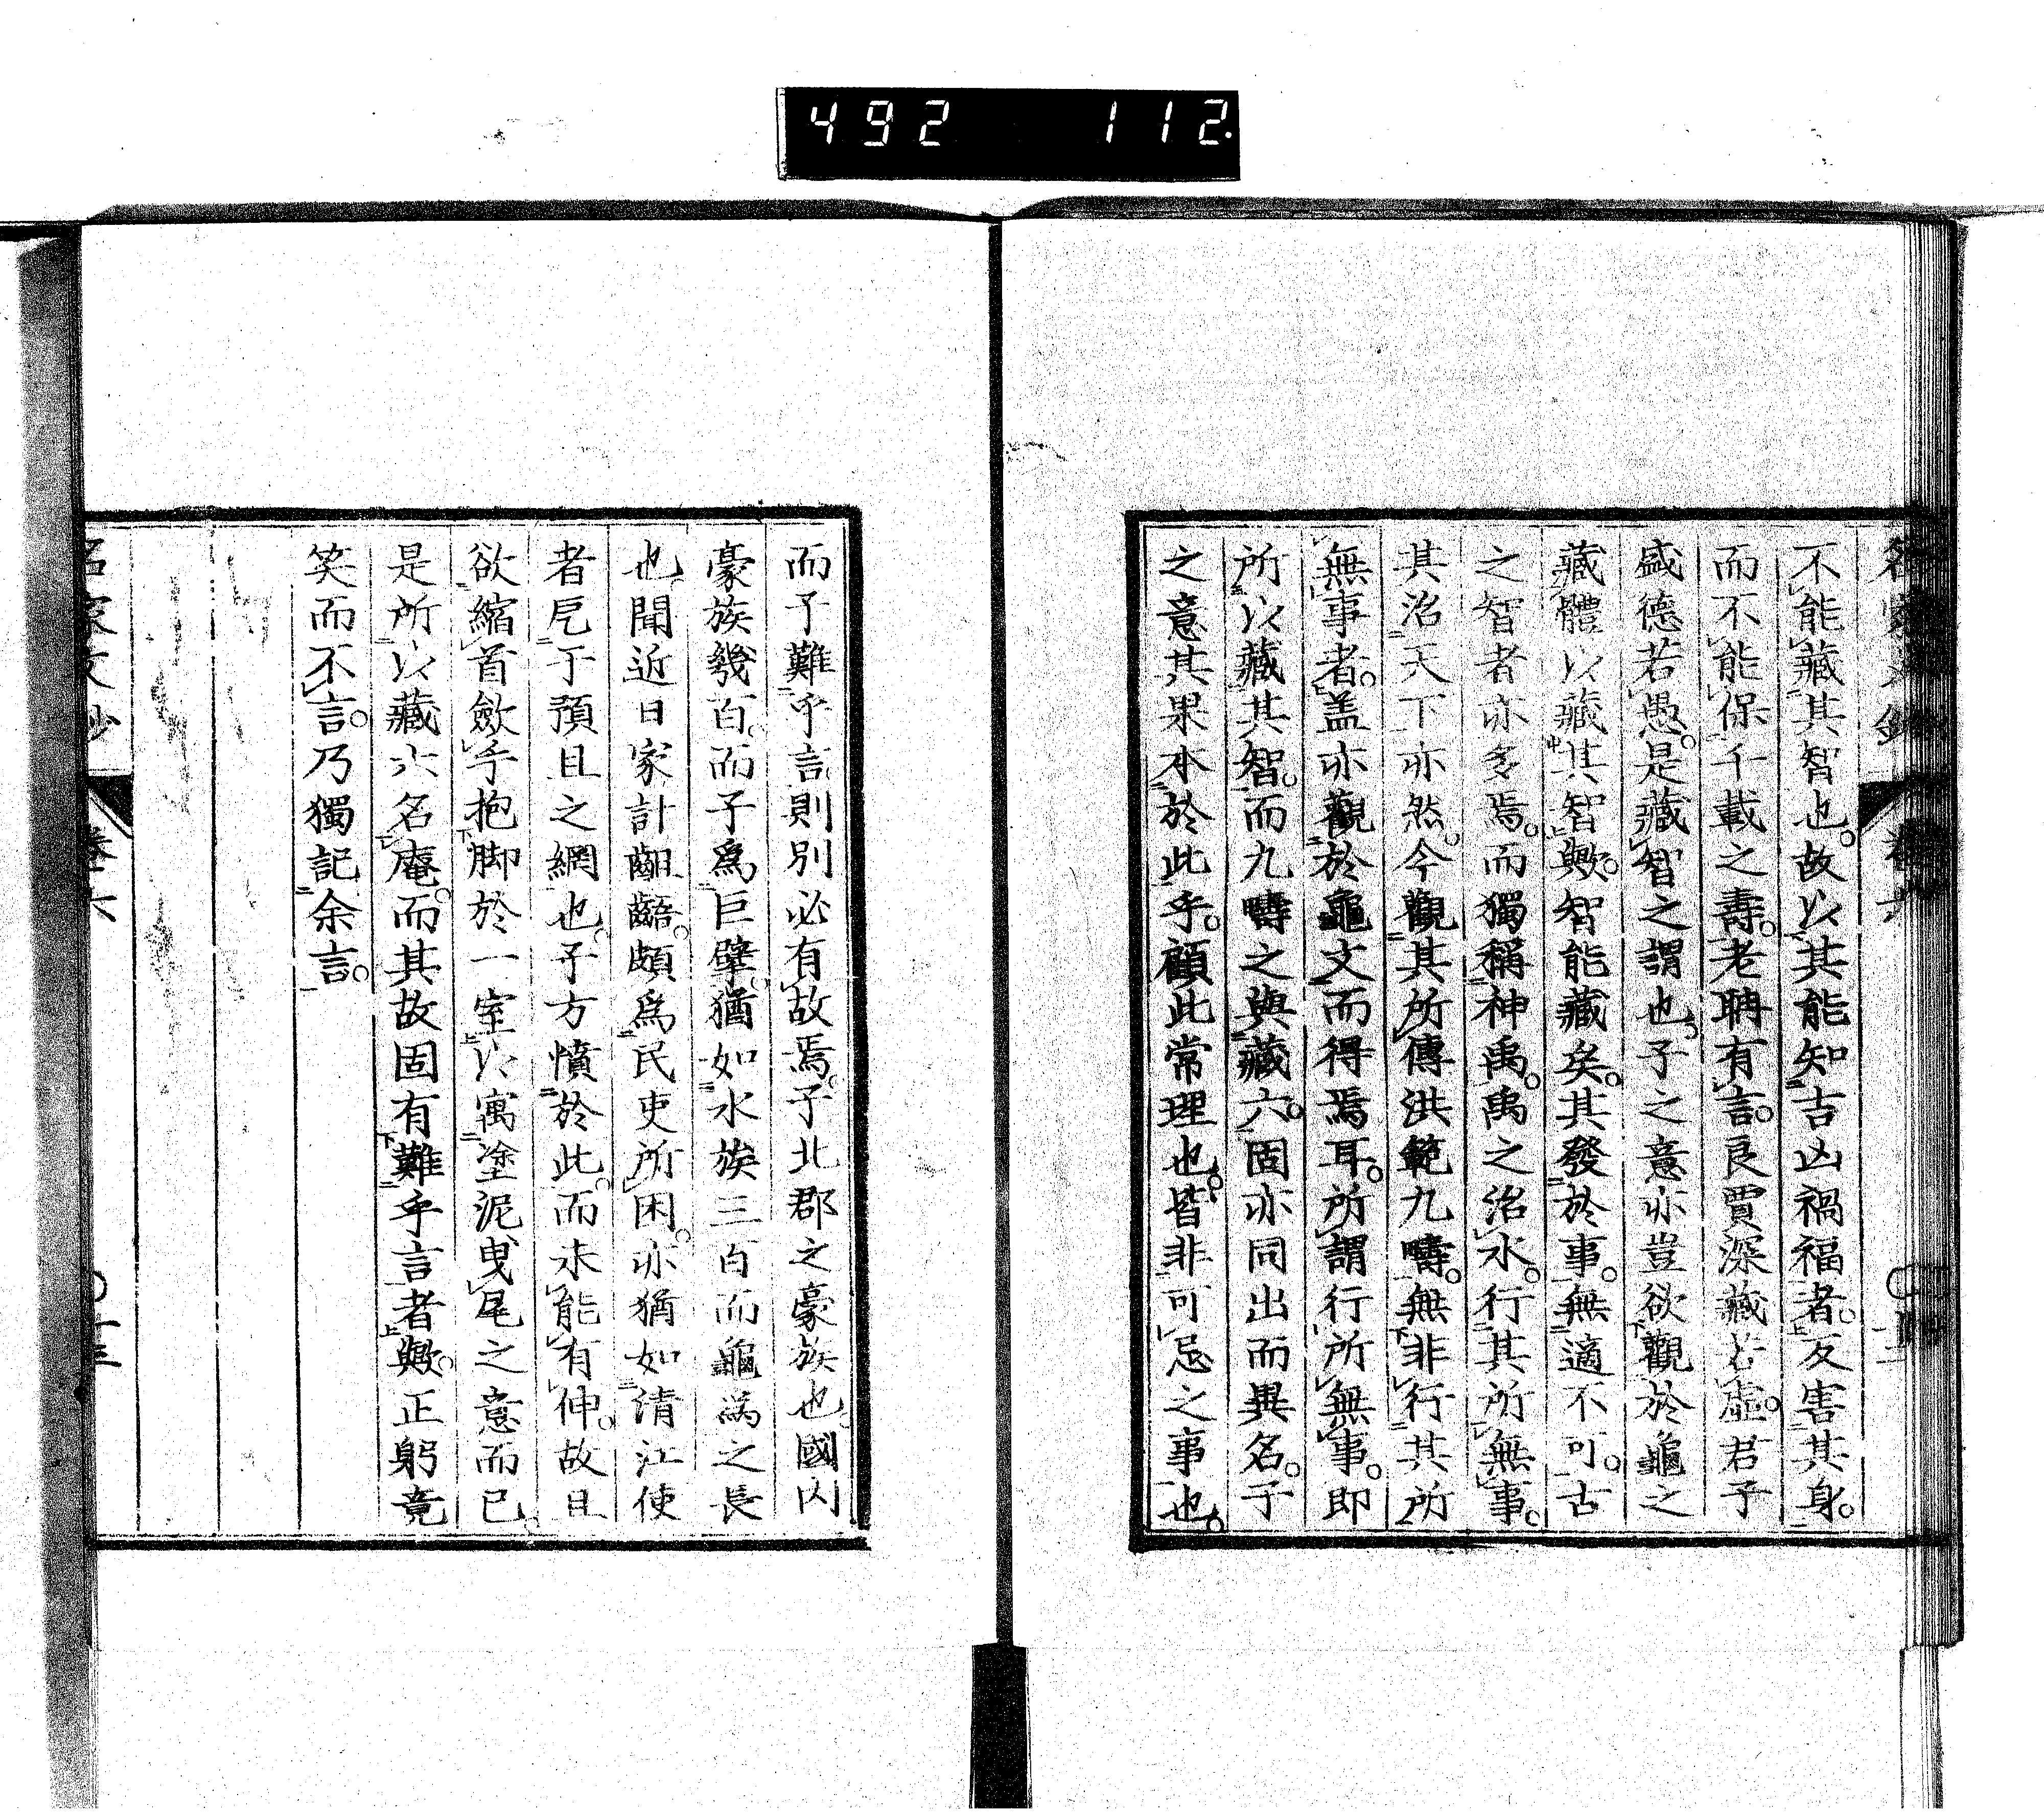 492 112
不能藏其智也。故以其能知吉凶禍福者。反害其身。
而不能保千載之壽。老聃有言。良賈深藏若虛。君子
盛德若愚。是藏智之謂也。子之意亦豈欲觀於龜之
藏體以藏其智歟。智能藏矣。其發於事。無適不可。古
之智者亦多焉。而獨稱神禹。禹之治水。行其所無事。
其治天下亦然。今觀其所傳洪範九疇。無非行其所
無事者。盖亦觀於龜文而得焉耳。所謂行所無事。即
所以藏其智。而九疇之與藏六。固亦同出而異名。子
之意其果本於此乎。顧此常理也。皆非可忌之事也。
而子難乎言則別必有故焉。子北郡之豪族也。國內
豪族幾百。而子爲巨擘。猶如水族三百而龜爲之長
也。聞近日家計齟齬。頗爲民吏所困。亦猶如淸江使
者戹于預且之網也。子方憤於此。而未能有伸。故且
欲縮首歛手抱脚於一室。以寓塗泥曳尾之意而已。
是所以藏六名庵。而其故固有難乎言者歟。正躬竟
笑而不言。乃獨記余言。
名家文鈔 卷六